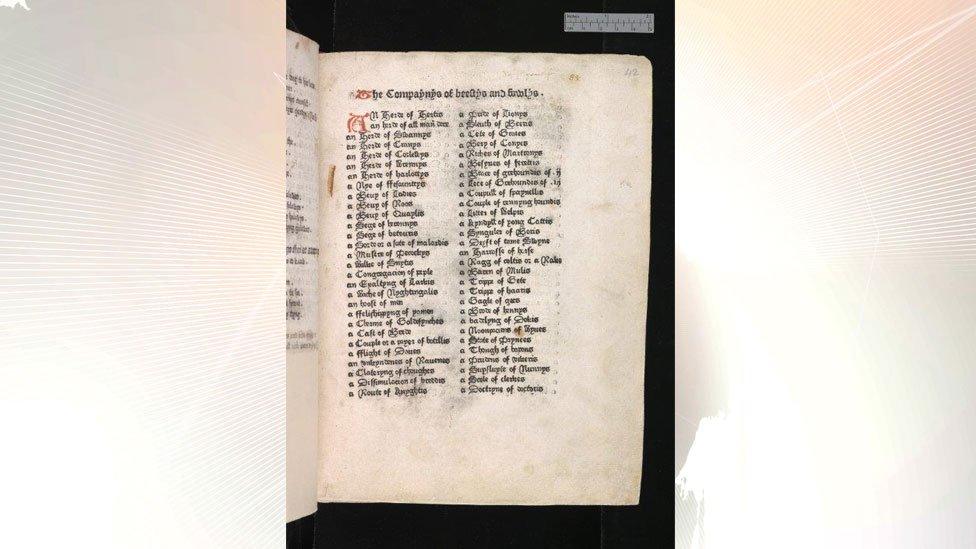 83
42
The Compaynys of beestys and fowlys.
AN Herde of Hertis
an herde of all mañ dere
an Herde of Swannys
an Herde of Cranys
an Herde of Corlewys
an Herde of Wrennys
an Herde of harlottys
a Nye of ffesaunttys
a Beuy of Ladies
a Beuy of Roos
a Beuy of Quaylis
a Sege of heronnys
a Sege of betouris
a Sorde or a sute of malardis
a Mustre of Pecockys
a walke of Snytis
a Congregacion of peple
an Exaltyng of Larkis
a wache of Nyghtingalis
an hoost of men
a ffelishippyng of yomen
a Cherme of Goldefynches
a Cast of Brede
a Couple or a payer of botillis
a fflight of Doues
an vnkyndenes of Rauenes
a Clateryng of choughes
a Dissimulacion of breddis
a Route of knyghtis
a Pride of Lionys
a Sleuth of Beeris
a Cete of Graies
a Bery of Conyes
a Riches of Martronys
a Besynes of ferettis
a Brace of grehoundis of .ij
a Lece of Grehoundis of .iij
a Coupull of spaynellis
a Couple of rennyng houndis
a Litter of welpis
a kyndyll of yong Cattis
a Synguler of Boris
a Dryft of tame Swyne
an Harrasse of horse
a Ragg of coltis or a Rake
a Baren of Mulis
a Trippe of Gete
a Trippe of haaris
a Gagle of gees
a Brode of hennys
a badelyng of Dokis
a Noonpaciens of wyues
a State of Prynces
a Thongh of barons
a Prudens of vikeris
a Supfluyte of Nunnys
a Scole of clerkes
a Doctryne of doctoris